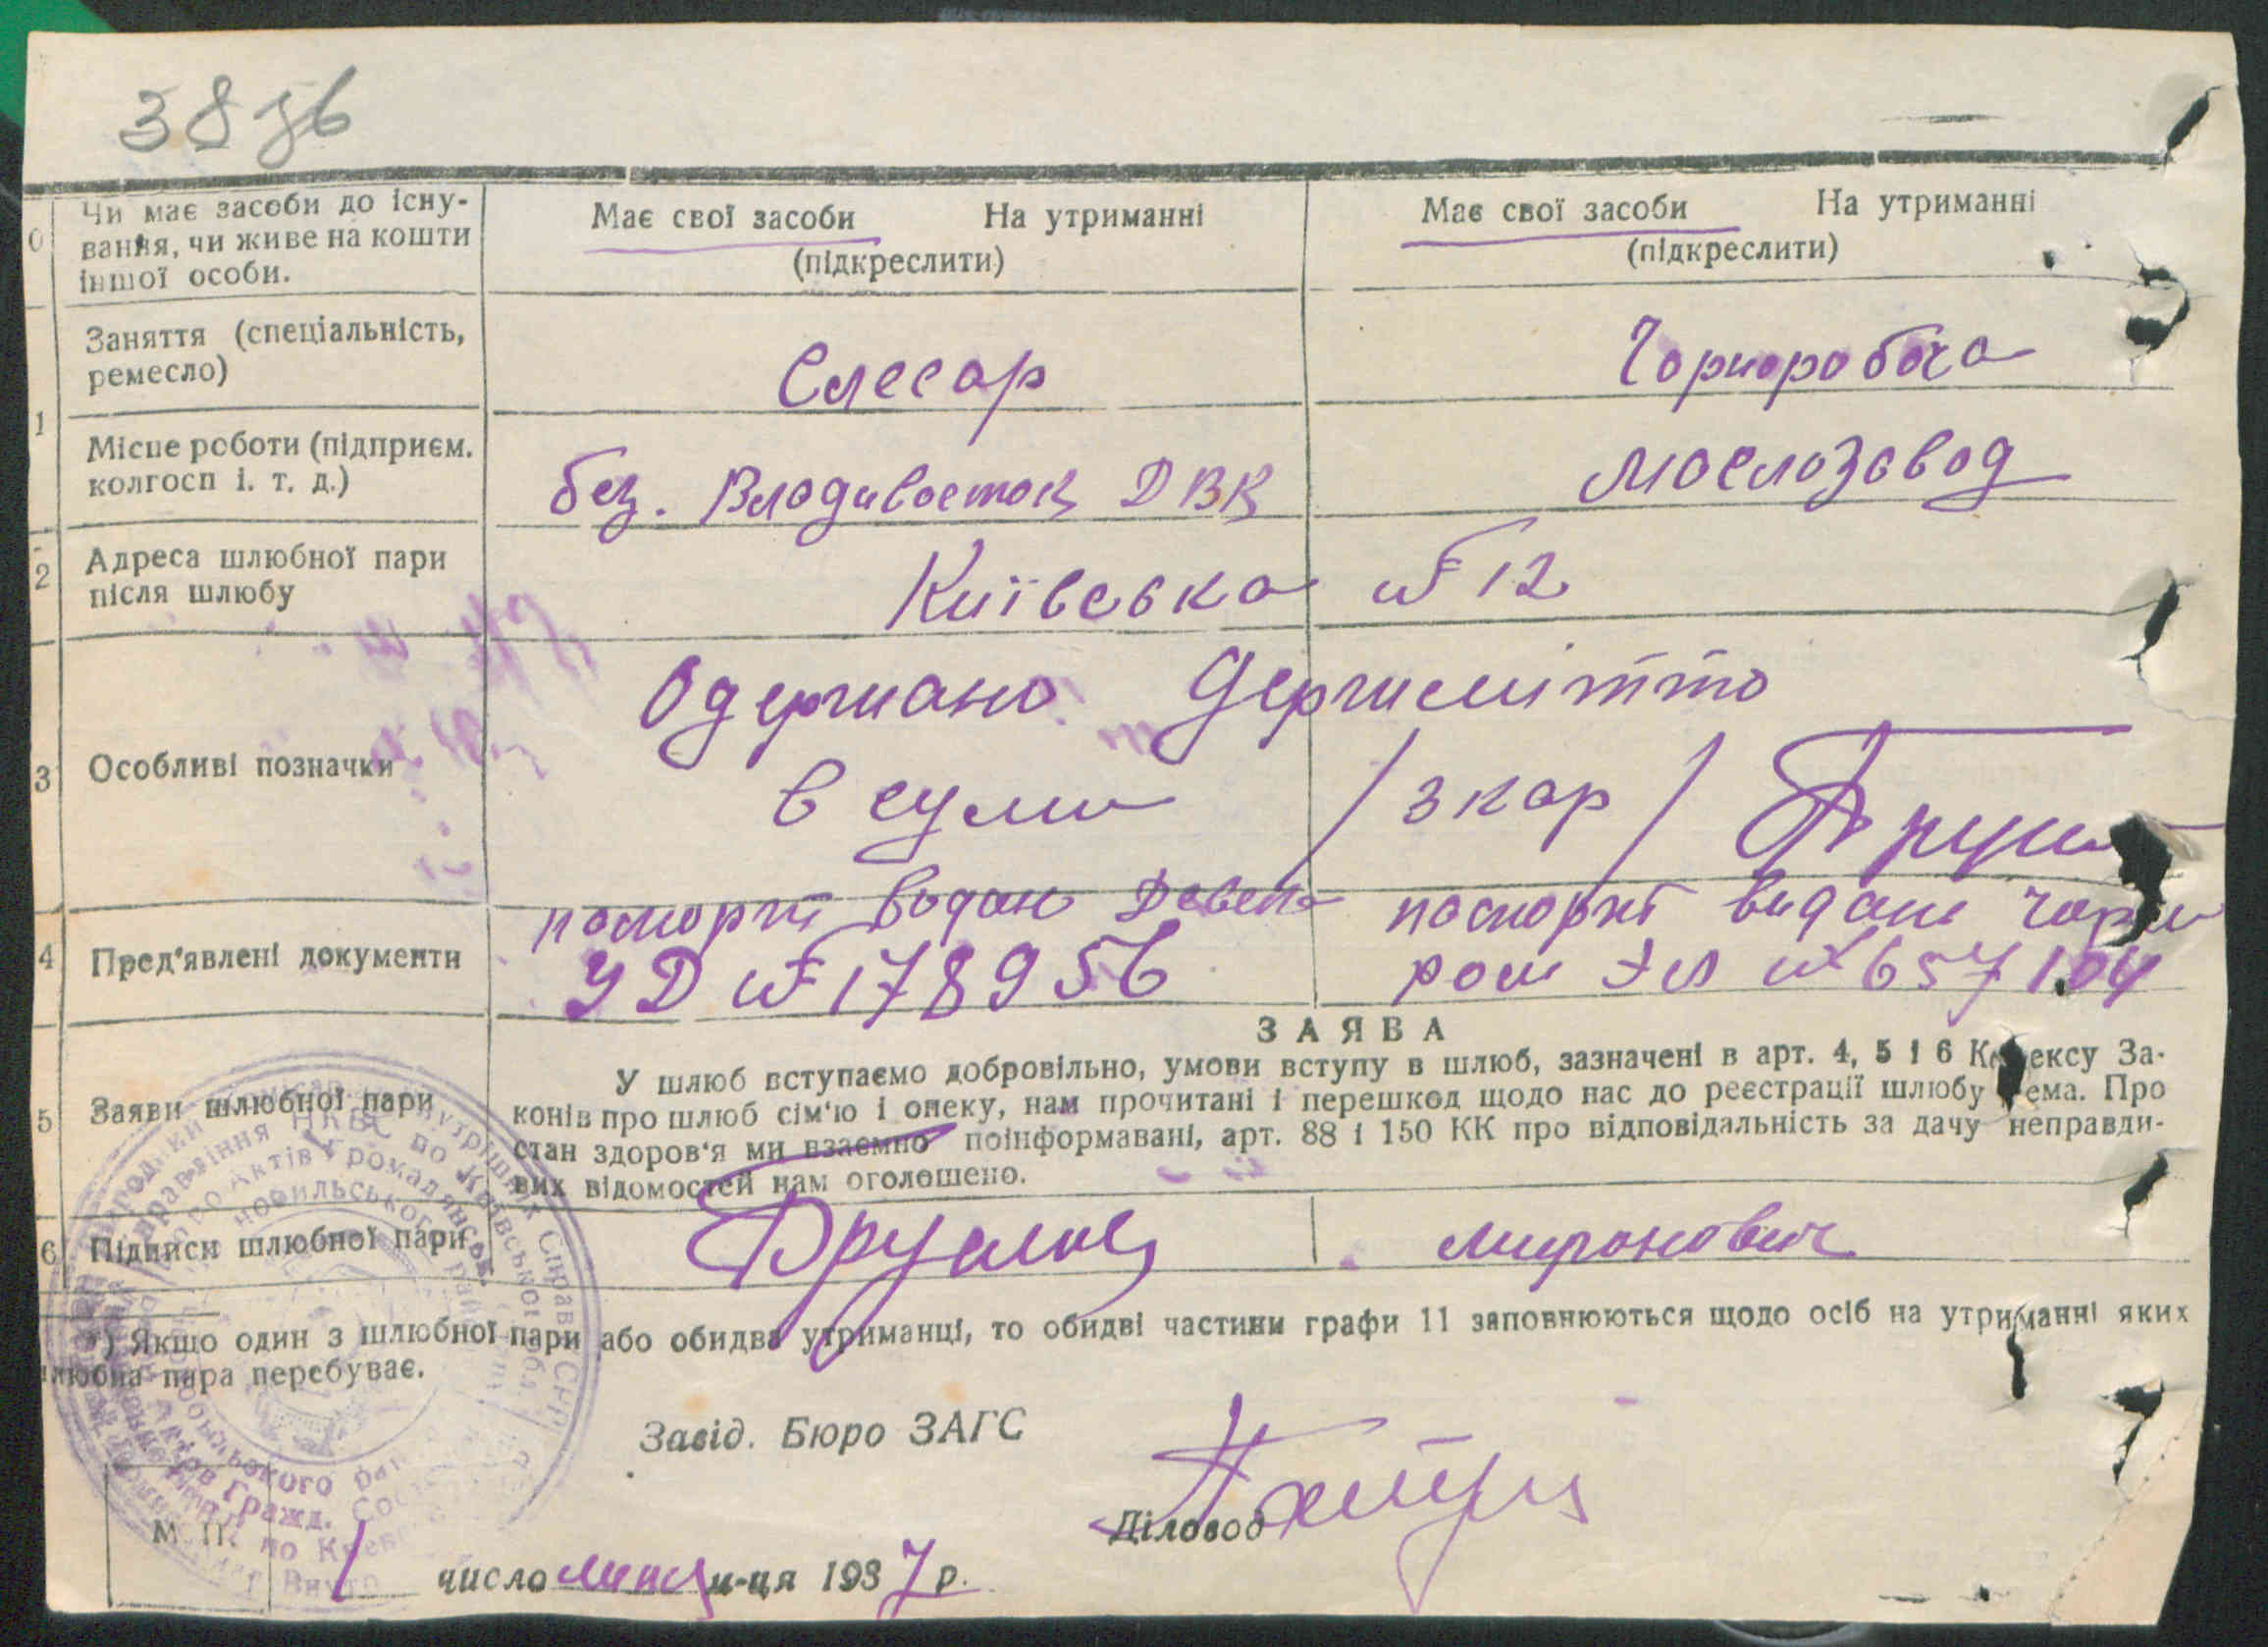 3876
0 Чи має засоби до існу-
вання, чи живе на кошти
іншої особи.
Має свої засоби На утриманні
(підкреслити)
Має свої засоби На утриманні
(підкреслити)
1 Заняття (спеціальність,
ремесло)
Слесар
Чорноробоча
Місце роботи (підприєм.
колгосп і. т. д.)
без. Владивосток ДВК
маслозавод
2 Адреса шлюбної пари
після шлюбу
Київська № 12
3 Особливі позначки
Одержано
в сумі / 3 кар /
4 Пред'явлені документи
паспорт
УД № 178956
паспорт видан
ром ЭЛ № 657104
5 Заяви шлюбної пари
ЗАЯВА
У шлюб вступаємо добровільно, умови вступу в шлюб, зазначені в арт. 4, 5 і 6 К ексу За-
конів про шлюб сім'ю і опеку, нам прочитані і перешкод щодо нас до реєстрації шлюбу ема. Про
стан здоров'я ми взаємно поінформавані, арт. 88 і 150 КК про відповідальність за дачу неправди-
вих відомостей нам оголошено.
6 Підписи шлюбної пари
Миронович
*) Якщо один з шлюбної пари або обидва утриманці, то обидві частини графи 11 заповнюються щодо осіб на утриманні яких
шлюбна пара перебуває.
Завід. Бюро ЗАГС
Діловод
М. П.
1 число липця м-ця 1937 р.